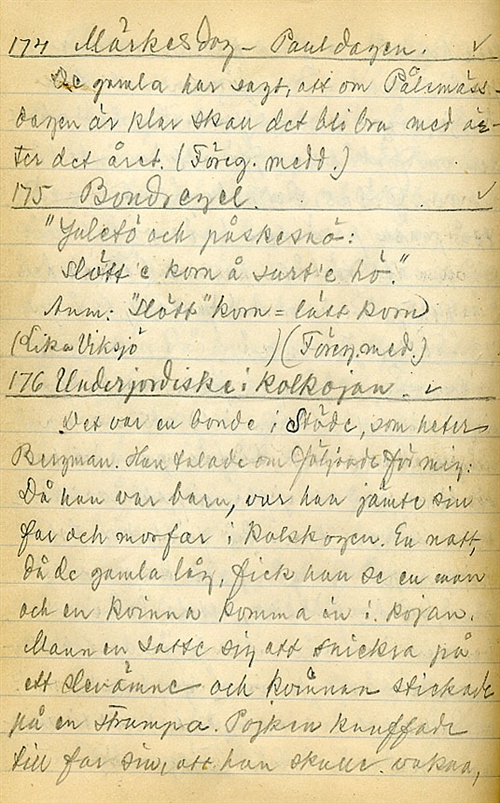 174 Märkesdag - Pauldagen.
De gamla har sagt, att om Pålsmäss-
dagen är klar skall det bli bra med äk-
ter det året. (Föreg. medd.)
175 Bondregel.
"Juletö och påskesnö:
slött'e korn å surt'e hö."
Anm: "slött" korn = lätt korn
(Lika Viksjö )(Föreg. med.)
176 Underjordiske i kolkojan.
Det var en bonde i Stöde, som heter
Bergman. Han talade om följande för mig:
Då han var barn, var han jämte sin
far och morfar i kolskogen. En natt,
då de gamla låg, fick han se en man
och en kvinna komma in i kojan.
Mannen satte sig att snickra på
ett slevämne och kvinnan stickade
på en strumpa. Pojken knuffade
till far sin, att han skulle vakna,